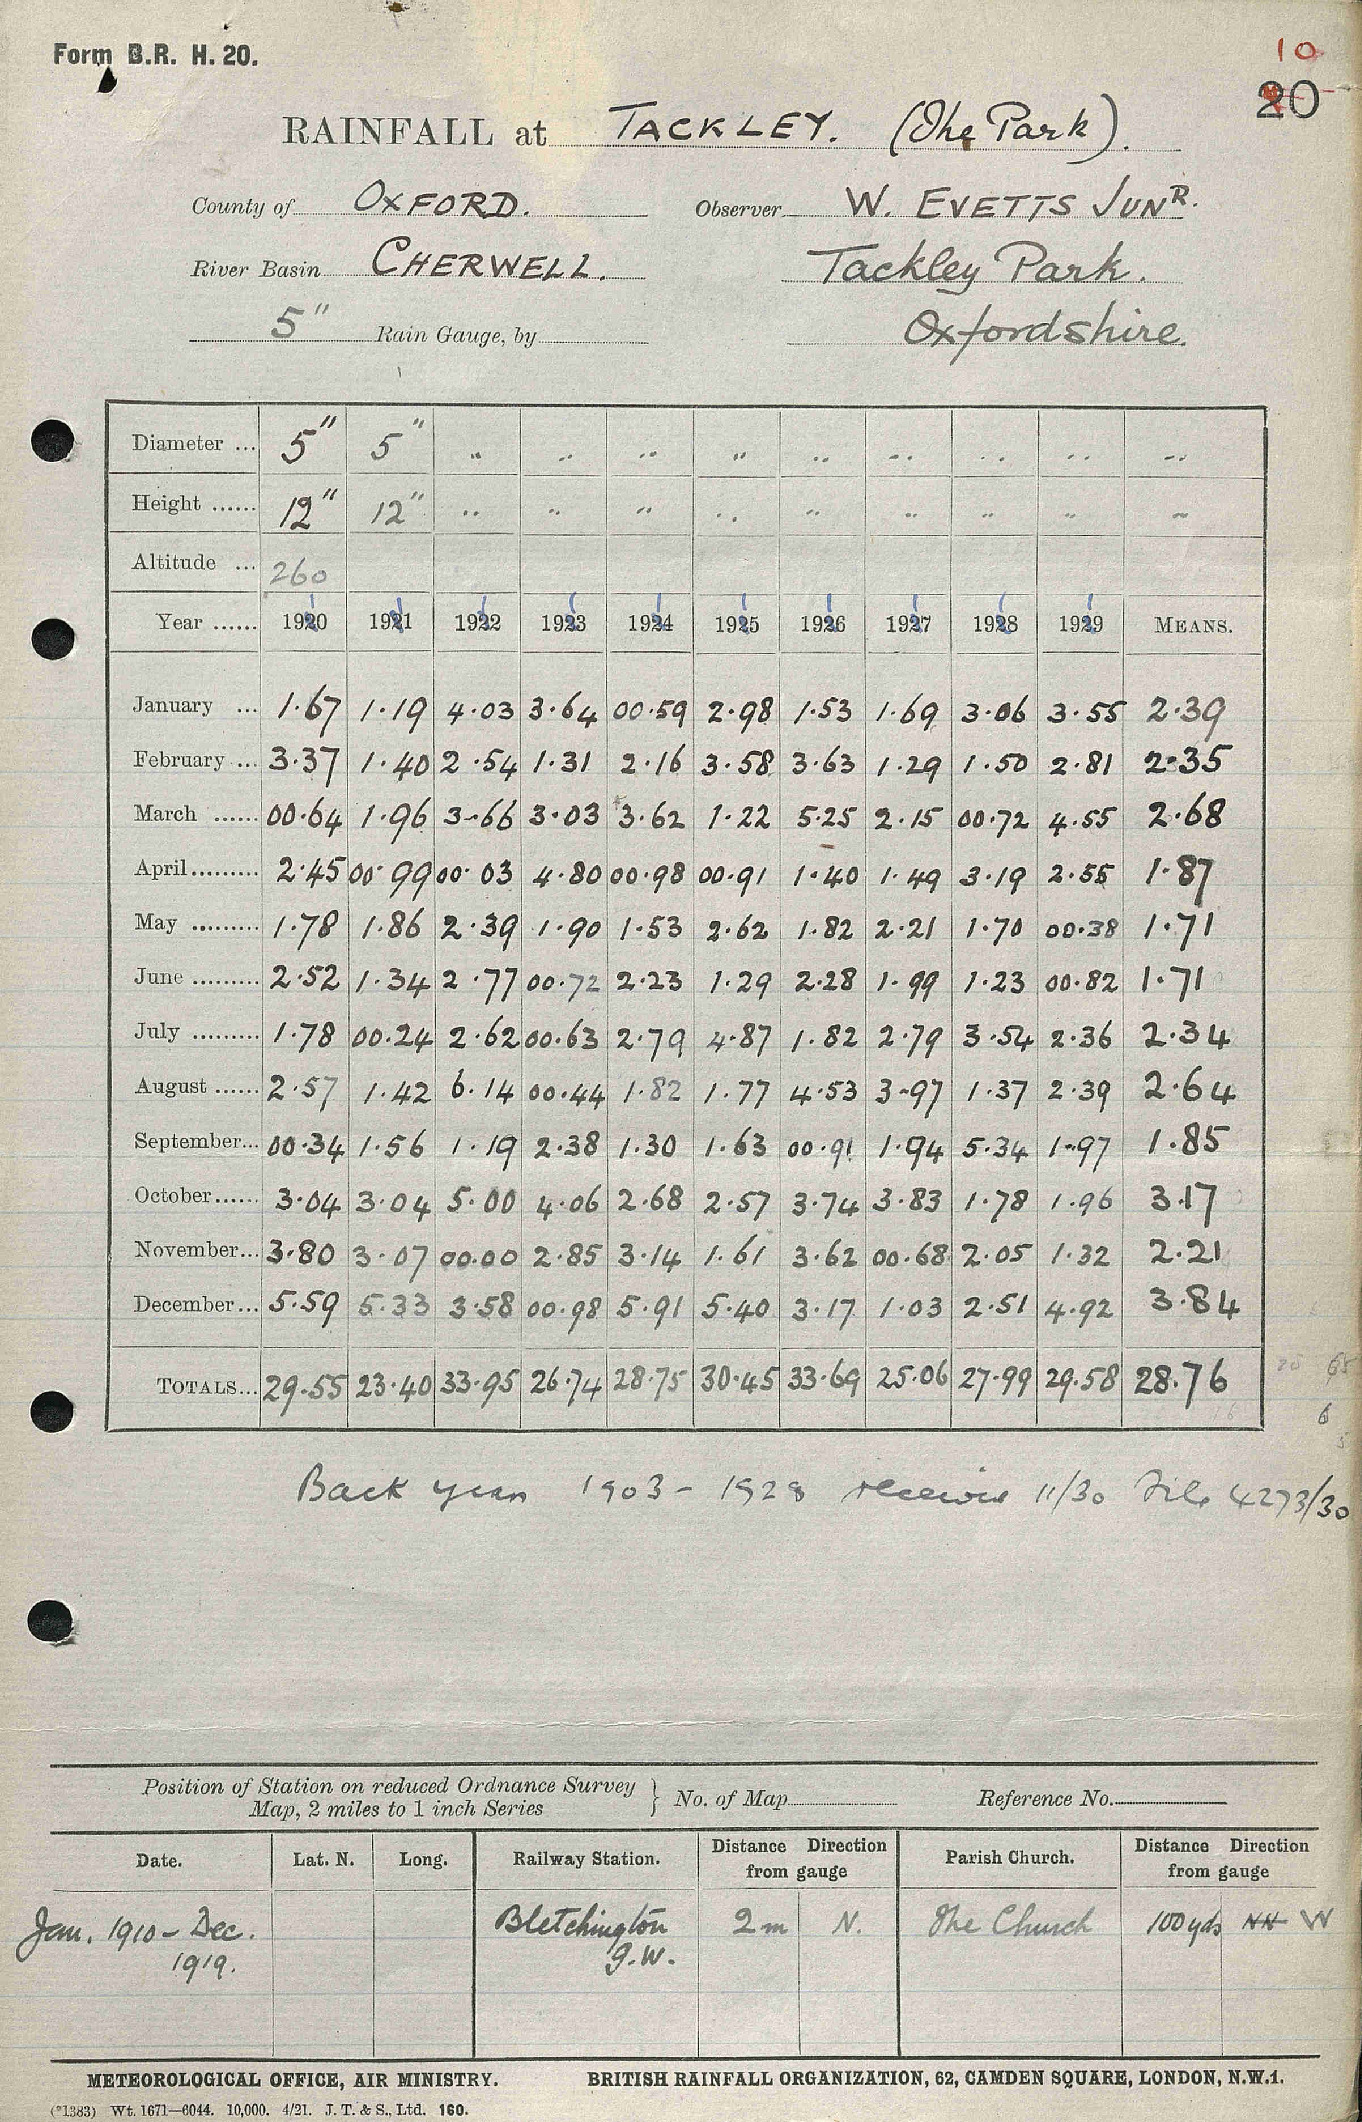 Form B.R. H. 20.
10
20
RAINFALL at TACKLEY. (The Park).
County of OXFORD. Observer W. EVETTS JUNR.
River Basin CHERWELL. Tackley Park.
5" Rain Gauge, by Oxfordshire.
Diameter ... 5" 5" " " " " " " " " "
Height ...... 12" 12" " " " " " " " " "
Altitude ... 260
Year ...... 1910 1911 1912 1913 1914 1915 1916 1917 1918 1919 MEANS.
January ... 1.67 1.19 4.03 3.64 00.59 2.98 1.53 1.69 3.06 3.55 2.39
February ... 3.37 1.40 2.54 1.31 2.16 3.58 3.63 1.29 1.50 2.81 2.35
March ...... 00.64 1.96 3.66 3.03 3.62 1.22 5.25 2.15 00.72 4.55 2.68
April ......... 2.45 00.99 00.03 4.80 00.98 00.91 1.40 1.49 3.19 2.55 1.87
May ......... 1.78 1.86 2.39 1.90 1.53 2.62 1.82 2.21 1.70 00.38 1.71
June ......... 2.52 1.34 2.77 00.72 2.23 1.29 2.28 1.99 1.23 00.82 1.71
July ......... 1.78 00.24 2.62 00.63 2.79 4.87 1.82 2.79 3.54 2.36 2.34
August ...... 2.57 1.42 6.14 00.44 1.82 1.77 4.53 3.97 1.37 2.39 2.64
September... 00.34 1.56 1.19 2.38 1.30 1.63 00.91 1.94 5.34 1.97 1.85
October...... 3.04 3.04 5.00 4.06 2.68 2.57 3.74 3.83 1.78 1.96 3.17
November... 3.80 3.07 00.00 2.85 3.14 1.61 3.62 00.68 2.05 1.32 2.21
December... 5.59 5.33 3.58 00.98 5.91 5.40 3.17 1.03 2.51 4.92 3.84
TOTALS... 29.55 23.40 33.95 26.74 28.75 30.45 33.69 25.06 27.99 29.58 28.76
Back years 1903 - 1928 received 11/30 File 4273/30
Position of Station on reduced Ordnance Survey Map, 2 miles to 1 inch Series } No. of Map Reference No.
Date. Lat. N. Long. Railway Station. Distance Direction from gauge Parish Church. Distance Direction from gauge
Jan. 1910 - Dec. 1919. Bletchington G.W. 2 m N. The Church 100 yds W
METEOROLOGICAL OFFICE, AIR MINISTRY. BRITISH RAINFALL ORGANIZATION, 62, CAMDEN SQUARE, LONDON, N.W.1.
(*1383) Wt. 1671—6044. 10,000. 4/21. J. T. & S., Ltd. 160.